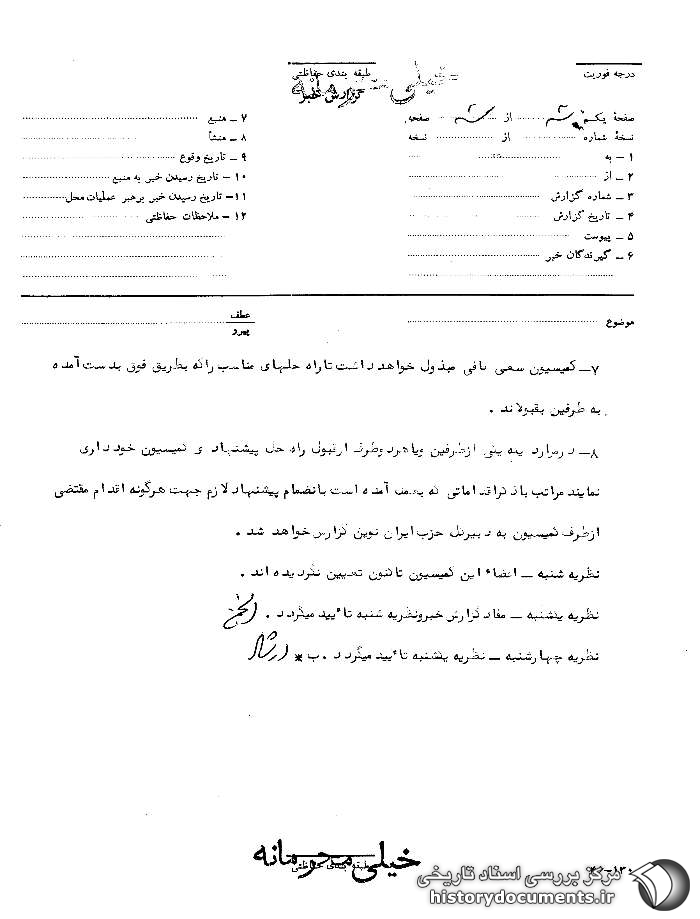 درجه فوریت
طبقه بندی حفاظتی
خیلی
گزارش خبر
صفحهٔ یکم از صفحه
نسخهٔ شماره از نسخه
۱ – به
۲ – از
۳ – شماره گزارش
۴ – تاریخ گزارش
۵ – پیوست
۶ – گیرندگان خبر
۷ – منبع
۸ – منشأ
۹ – تاریخ وقوع
۱۰ – تاریخ رسیدن خبر به منبع
۱۱– تاریخ رسیدن خبر برهبر عملیات محل
۱۲ – ملاحظات حفاظتی
موضوع
عطف
پیرو
۷– کمیسیون سعی کافی مبذول خواهد داشت تا راه حلهای مناسب را که بطریق فوق بدست آمده
به طرفین بقبولاند .
۸– در موارد یکه یکی ازطرفین ویا هردوطرف ازقبول راه حل پیشنهادی کمیسیون خودداری
نمایند مراتب باذکراقداماتی که بعمل آمده است بانضمام پیشنهاد لازم جهت هرگونه اقدام مقتضی
ازطرف کمیسیون به دبیرکل حزب ایران نوین گزارش خواهد شد .
نظریه شنبه – اعضاء این کمیسیون تاکنون تعیین نگردیده اند .
نظریه یکشنبه – مفاد گزارش خبرونظریه شنبه تائید میگردد .
نظریه چهارشنبه – نظریه یکشنبه تائید میگردد . ب *
خیلی محرمانه
طبقه بندی حفاظتی
مرکز بررسی اسناد تاریخی
historydocuments.ir